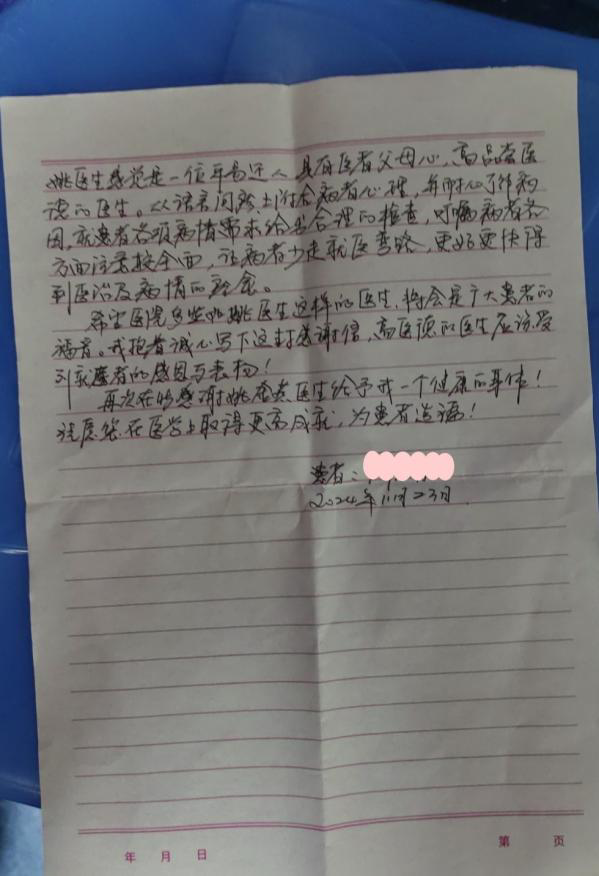 姚医生感觉是一位平易近人具有医者父母心，高品质医
德的医生。从语言问疹上附合病者心理，并耐心了解病
因，就患者各项病情需求给出合理的检查，叮嘱病者各
方面注意较全面，让病者少走就医弯路，更好更快得
到医治及病情的痊愈。
希望医院多些姚医生这样的医生，将会是广大患者的
福音。我抱着诚心写下这封感谢信，高医德的医生应该受
到就医者的感恩与表扬！
再次在此感谢姚 医生给予我一个健康的身体！
祝愿您在医学上取得更高成就，为患者造福！
患者：
2024年11月23日
年 月 日
第 页